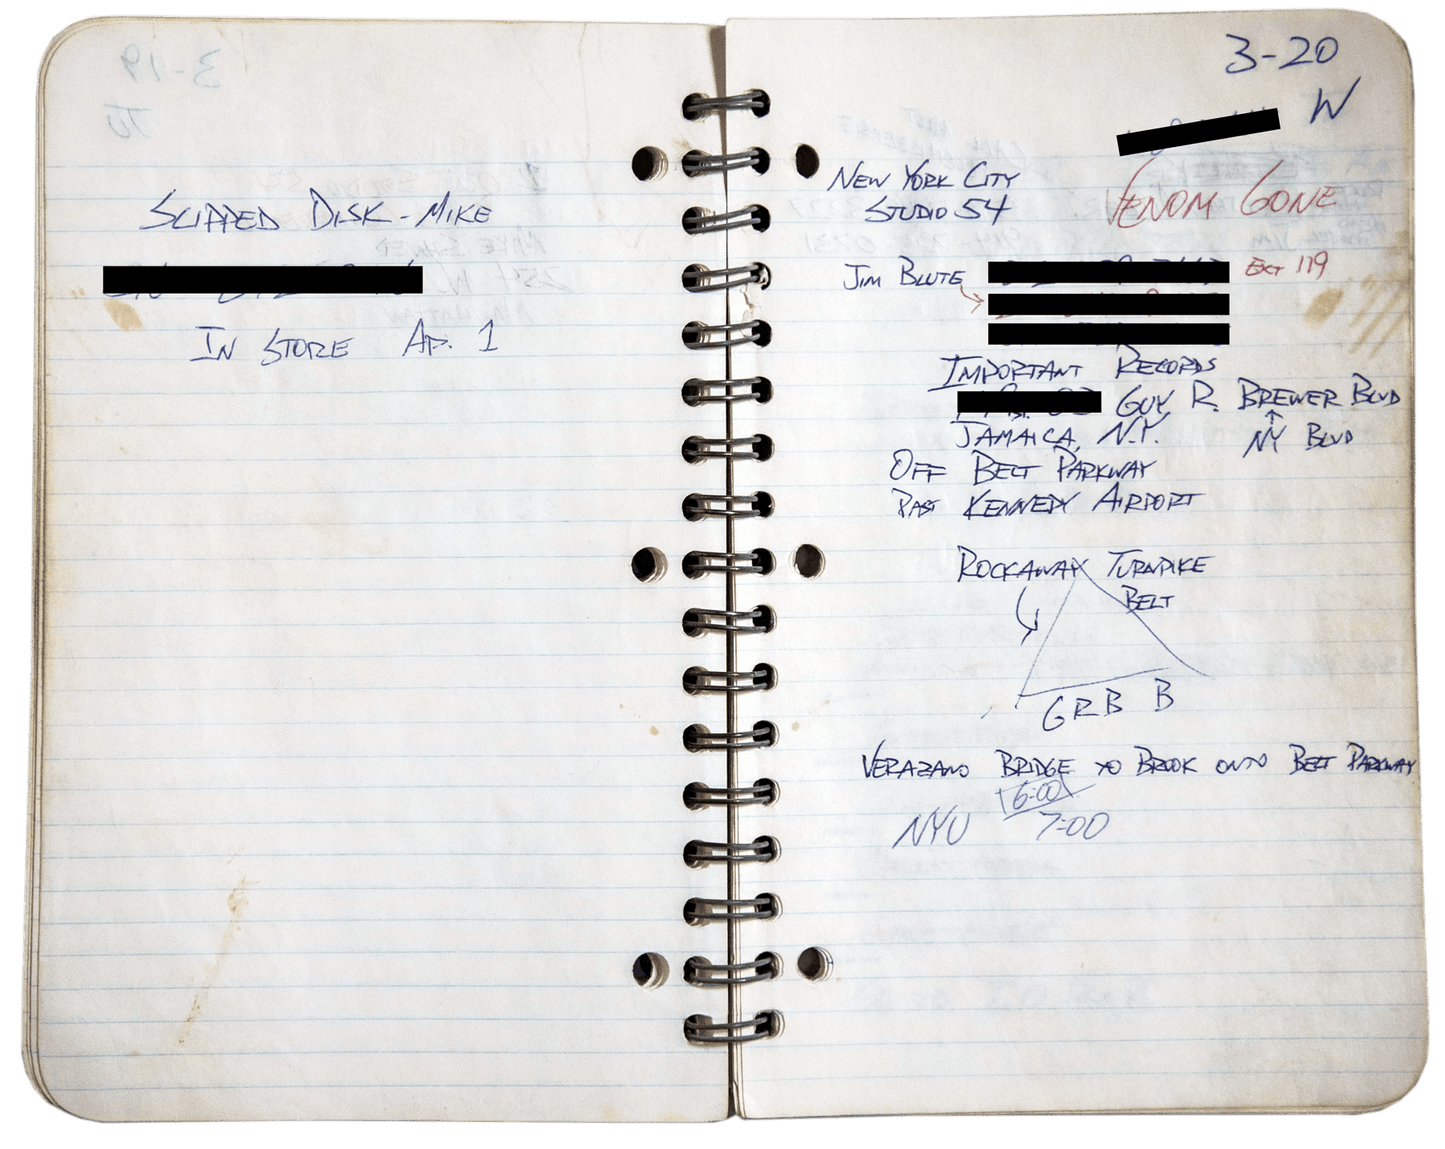 SLIPPED DISK - MIKE
IN STORE AP. 1
3-20
W
NEW YORK CITY
STUDIO 54
VENOM GONE
JIM BLUTE
EXT 119
IMPORTANT RECORDS
GUY R. BREWER BLVD
JAMAICA, N.Y.
NY BLVD
OFF BELT PARKWAY
PAST KENNEDY AIRPORT
ROCKAWAY TURNPIKE
BELT
GRB B
VERAZANO BRIDGE TO BROOK ONTO BELT PARKWAY
6:00
NYU 7:00